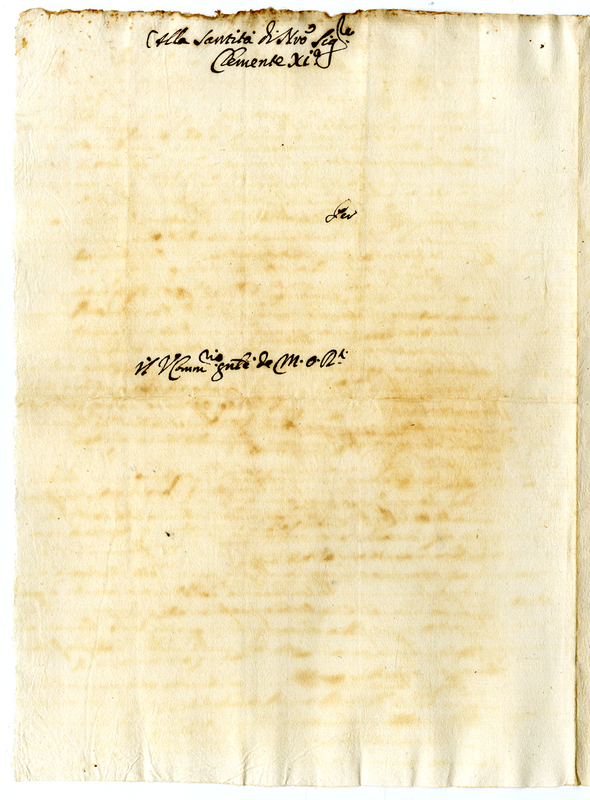 Alla Santità di Nro Sig.le
Clemente XI.o
Per
il Comm.rio gnle de M. o. R.i